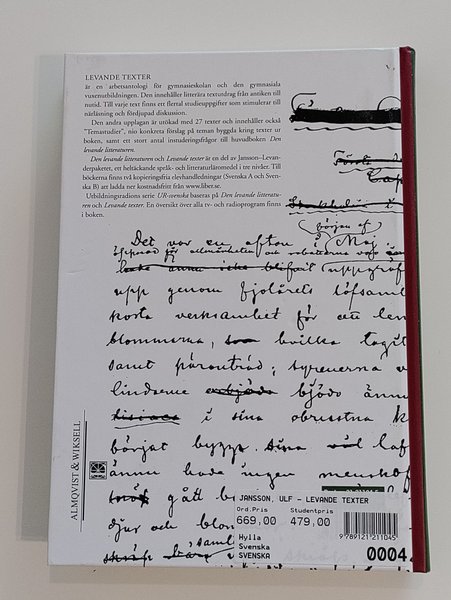 LEVANDE TEXTER
är en arbetsantologi för gymnasieskolan och den gymnasiala
vuxenutbildningen. Den innehåller litterära textutdrag från antiken till
nutid. Till varje text finns ett flertal studieuppgifter som stimulerar till
närläsning och fördjupad diskussion.
Den andra upplagan är utökad med 27 texter och innehåller också
"Temastudier", nio konkreta förslag på teman byggda kring texter ur
boken, samt ett stort antal instuderingsfrågor till huvudboken Den
levande litteraturen.
Den levande litteraturen och Levande texter är en del av Jansson–Levan-
derpaketet, ett heltäckande språk- och litteraturläromedel i tre nivåer. Till
böckerna finns två kopieringsfria elevhandledningar (Svenska A och Sven-
ska B) att ladda ner kostnadsfritt från www.liber.se.
Utbildningsradions serie UR-svenska baseras på Den levande litteratu-
ren och Levande texter. En översikt över alla tv- och radioprogram finns
i boken.
början af
Det var en afton i Maj.
upp genom fjolårets löfsaml
korta verksamhet för att len
blommorna, hvilka tagit
samt päronträd; syrenerna v
lindarne bjödo ännu
i sina obrustna k
börjat bygga
ännu hade ingen menskof
gått
djur och blom
ALMQVIST & WIKSELL
JANSSON, ULF - LEVANDE TEXTER
Ord.Pris Studentpris
669,00 479,00
Hylla
Svenska
SVENSKA
9789121211045
0004